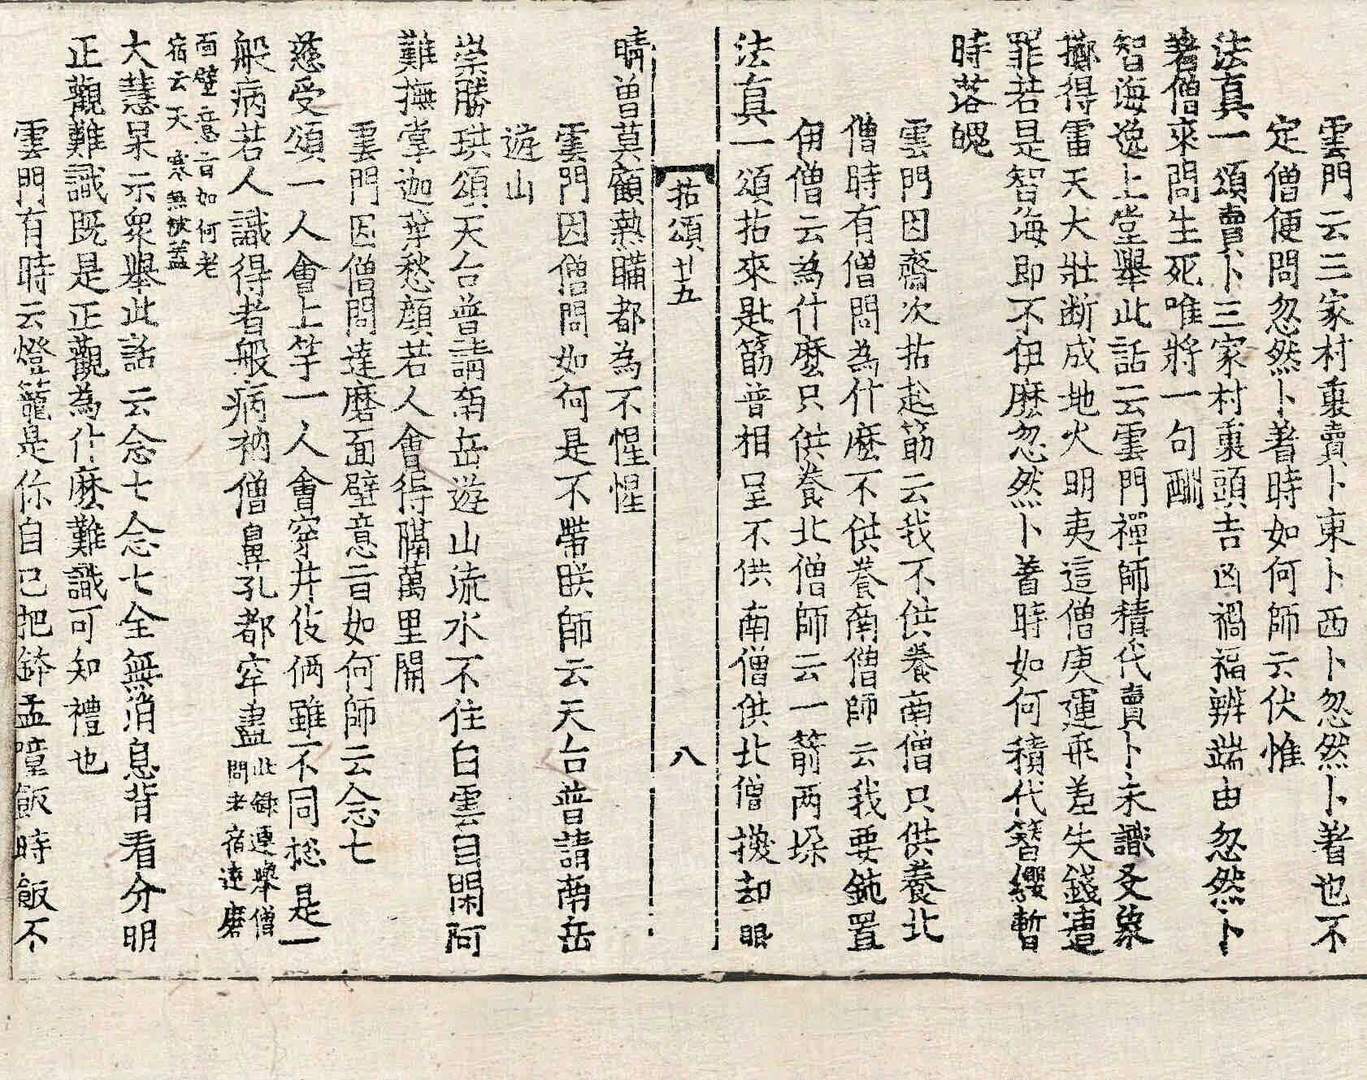 雲門云三家村裏賣卜東卜西卜忽然卜著也不
定僧便問忽然卜著時如何師云伏惟
法真一頌賣卜三家村裏頭吉凶禍福辨端由忽然卜
著僧來問生死唯將一句酬
智海逸上堂舉此話云雲門禪師積代賣卜未識爻象
擲得雷天大壯断成地火明夷這僧庚運乖差失錢遭
罪若是智海即不伊麽忽然卜着時如何積代簪纓暫
時落魄
雲門因齋次拈起筯云我不供養南僧只供養北
僧時有僧問為什麽不供養南僧師云我要鈍置
伊僧云為什麽只供養北僧師云一箭两垜
法真一頌拈來匙筯普相呈不供南僧供北僧換却眼
拈頌廿五
八
睛曽莫顧熱瞞都為不惺惺
雲門因僧問如何是不帶眹師云天台普請南岳
遊山
崇勝珙頌天台普請南岳遊山流水不住白雲自閑阿
難撫掌迦葉愁顔若人會得隔萬里開
雲門因僧問達磨面壁意旨如何師云念七
慈受頌一人會上竿一人會穿井伎俩雖不同捴是一
般病若人識得者般病衲僧鼻孔都穿盡此録連舉僧
問老宿達磨
面壁意旨如何老
宿云天寒無被盖
大慧杲示衆舉此話云念七念七全無消息背看分明
正觀難識既是正觀為什麽難識可知禮也
雲門有時云燈籠是你自己把鉢盂噇飯時飯不